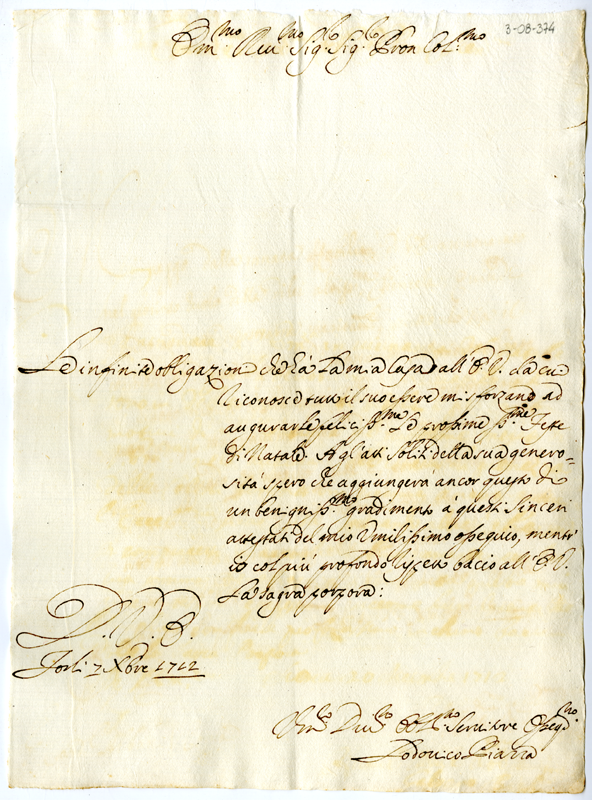 3-08-374
Em.mo Reu.mo Sig.r Sig.r Pron Col.mo
Le infinite obligazioni che hà la mia Casa all'E. V. da cui
riconosce tutto il suo essere mi sforzano ad
augurarle feliciss.me le prossime SS.me Feste
di Natale. Agl'atti soliti della sua genero=
sità spero che aggiungerà ancor questo di
un benigniss.mo gradimento à questi sinceri
attestati del mio Vmilissimo ossequio, mentr'
io col più profondo rispetto bacio all'E. V.
La sagra porpora:
D. V. E.
Forlì 7 Xbre 1712
Vm.o Diu.o Obl.mo Seruitore Osseq.mo
Lodouico Piazza